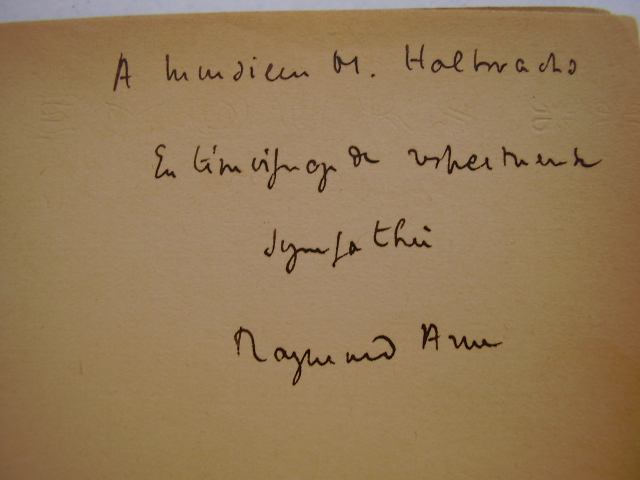 A Monsieur M. Halbwachs
En témoignage de respectueuse
sympathie
Raymond Aron